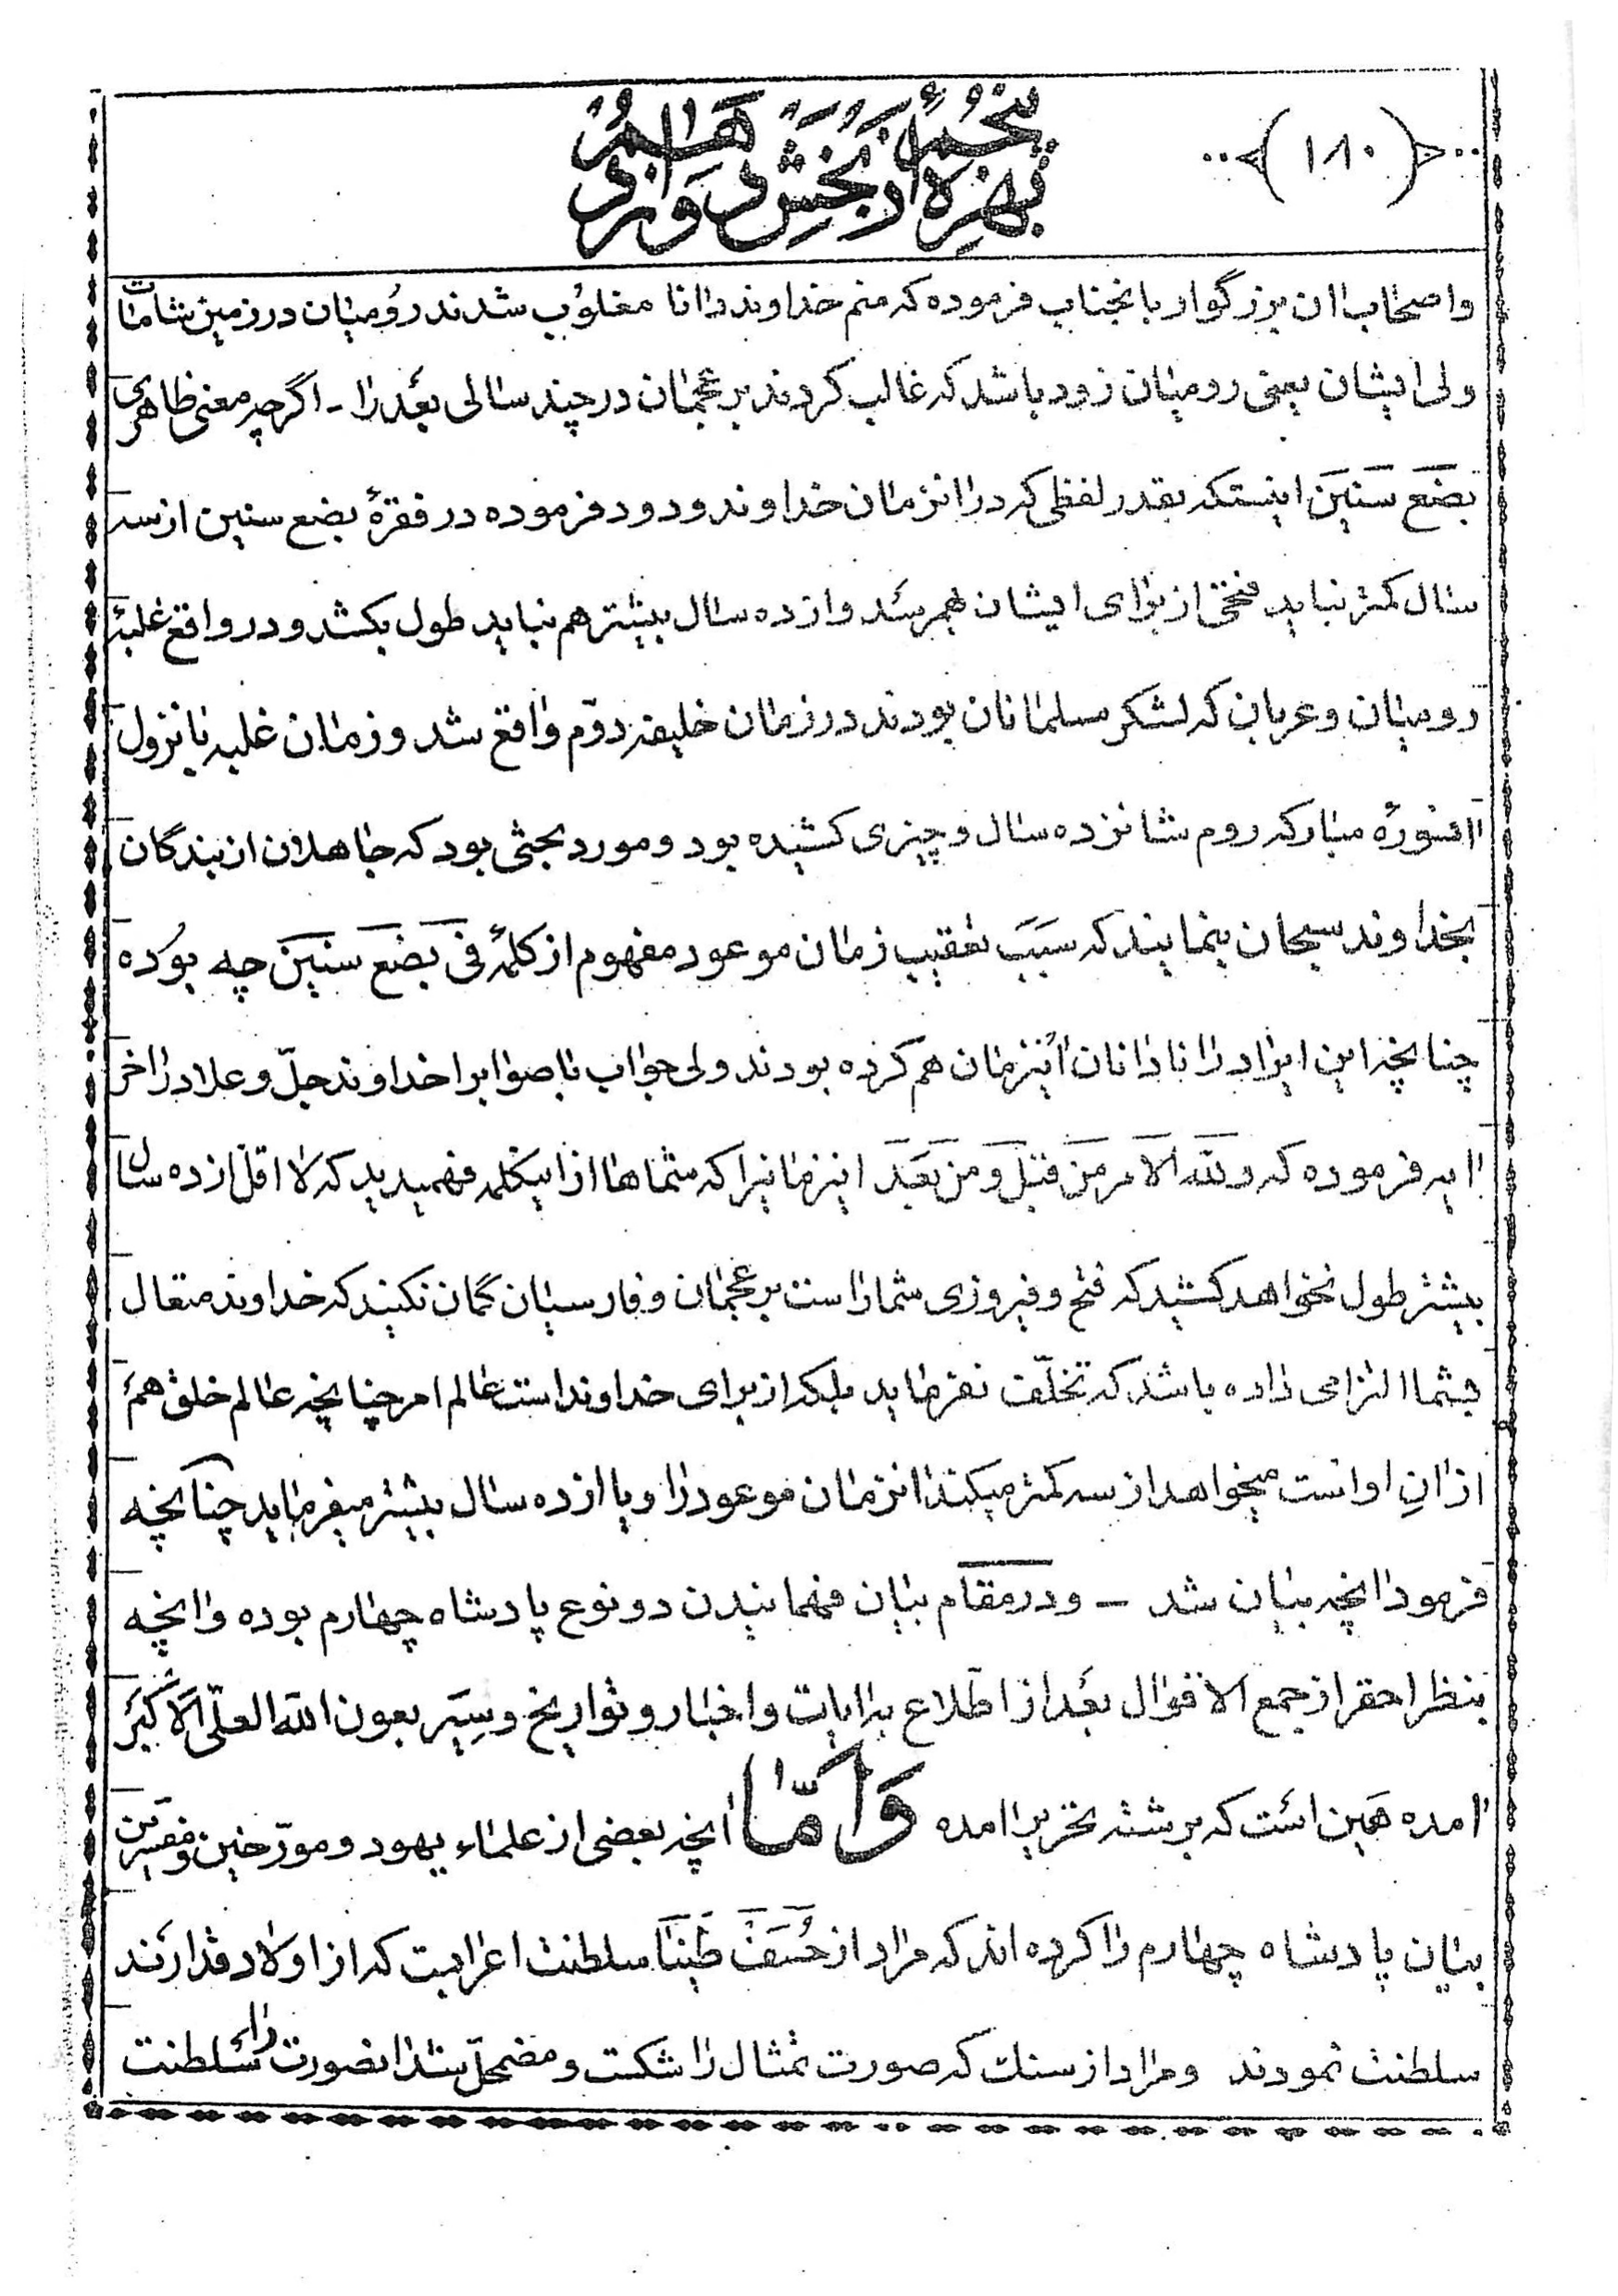 (۱۸۰)
پنجم از
بهره بخش دوازدهم
و اصحاب ان بزرگوار بانجناب فرموده که منم خداوند دانا مغلوُب شدند روُمیان در زمین شامات
ولی ایشان یعنی رومیان زود باشد که غالب کردند بر عجمان در چند سالی بعُد را ـ اگر چه معنی ظاهری
بِضعَ سَنینَ اینستکه بقدر لفظی که در انزمان خداوند ودود فرموده در فقرهٔ بضع سنین از سه
سال کمتر نباید فتحی از برای ایشان بهم رسد و از ده سال بیشتر هم نباید طول بکشد و در واقع غلبهٔ
رومیان و عربان که لشکر مسلمانان بودند در زمان خلیفه دوّم واقع شد و زمان غلبه با نزول
انسورهٔ مبارکه روم شانزده سال و چیزی کشیده بود و مورد بحثی بود که جاهلان از بندگان
بخداوند سبحان بنمایند که سَبَبَ تعقیب زمان موعود مفهوم از کلمهٔ فی بَضعَ سنینَ چه بوُده
چنانچه این ایراد را نادانان انزمان هم کرده بودند ولی جواب باصوابرا خداوند جلّ و علا در اخر
ایه فرموده که وللّه الامر مِن قبَل وَ من بَعَدَ انزمانیرا که شماها از اینکلمه فهمیدید که لا اقل از ده سال
بیشتر طول نخواهد کشید که فتح و فیروزی شما راست بر عجمان و فارسیان گمان نکنید که خداوند متعال
بشما التزامی داده باشد که تخلّف نفرماید بلکه از برای خداوند است عالم امر چنانچه عالم خلق همٔ
از انِ اوانست میخواهد از سه کمتر میکند انزمان موعود را و یا از ده سال بیشتر میفرماید چنانچه
فرمود انچه بیان شد ـ و در مقام بیان فهمانیدن دو نوع پادشاه چهارم بوده و انچه
بنظر احقر از جمع الاقوال بعُد از اطّلاع برایات و اخبار و تواریخ و سِیَر بعون اللّه العلّی الاَکبَر
امده هَمین است که برشته تحریر امده وَ اَمّا انچه بعضی از علماء یهود و مورّخین و مفسّرین
بیان پادشاه چهارم را کرده اند که مراد از حُسَف طَینَا سلطنت اعرابیت که از اولاد قدارند
سلطنت نمودند و مراد از سنك که صورت تمثال را شکست و مضمحلّ شد انصورت را سلطنت